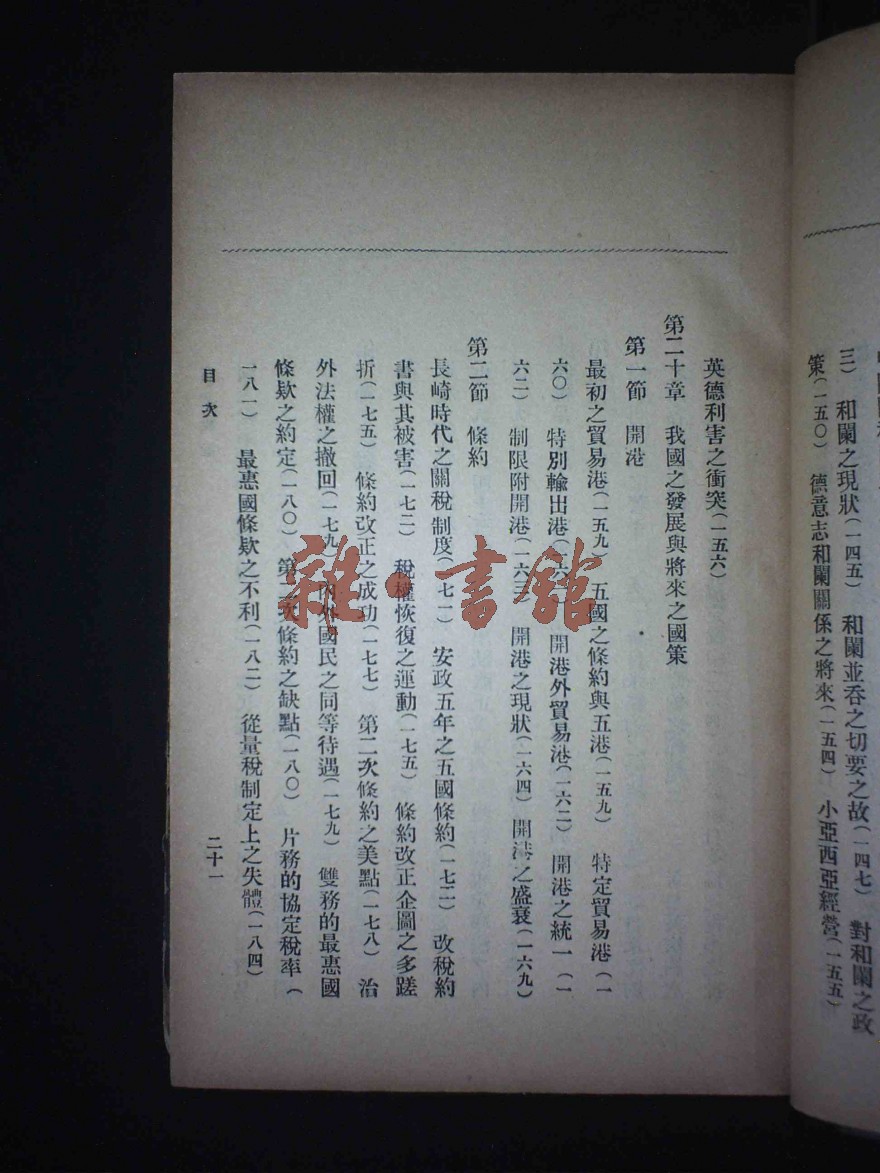 三) 和闌之現狀(一四五) 和闌並吞之切要之故(一四七) 對和闌之政
策(一五〇) 德意志和闌關係之將來(一五四) 小亞西亞經營(一五五)
英德利害之衝突(一五六)
第二十章 我國之發展與將來之國策
第一節 開港
最初之貿易港(一五九) 五國之條約與五港(一五九) 特定貿易港(一
六〇) 特別輸出港 開港外貿易港(一六二) 開港之統一(一
六二) 制限附開港(一六三) 開港之現狀(一六四) 開港之盛衰(一六九)
第二節 條約
長崎時代之關稅制度(一七一) 安政五年之五國條約(一七二) 改稅約
書與其被害(一七二) 稅權恢復之運動(一七五) 條約改正企圖之多蹉
折(一七五) 條約改正之成功(一七七) 第二次條約之美點(一七八) 治
外法權之撤回(一七九) 內外國民之同等待遇(一七九) 雙務的最惠國
條欵之約定(一八〇) 第二次條約之缺點(一八〇) 片務的協定稅率(
一八一) 最惠國條欵之不利(一八二) 從量稅制定上之失體(一八四)
目次
二十一
雜·書館